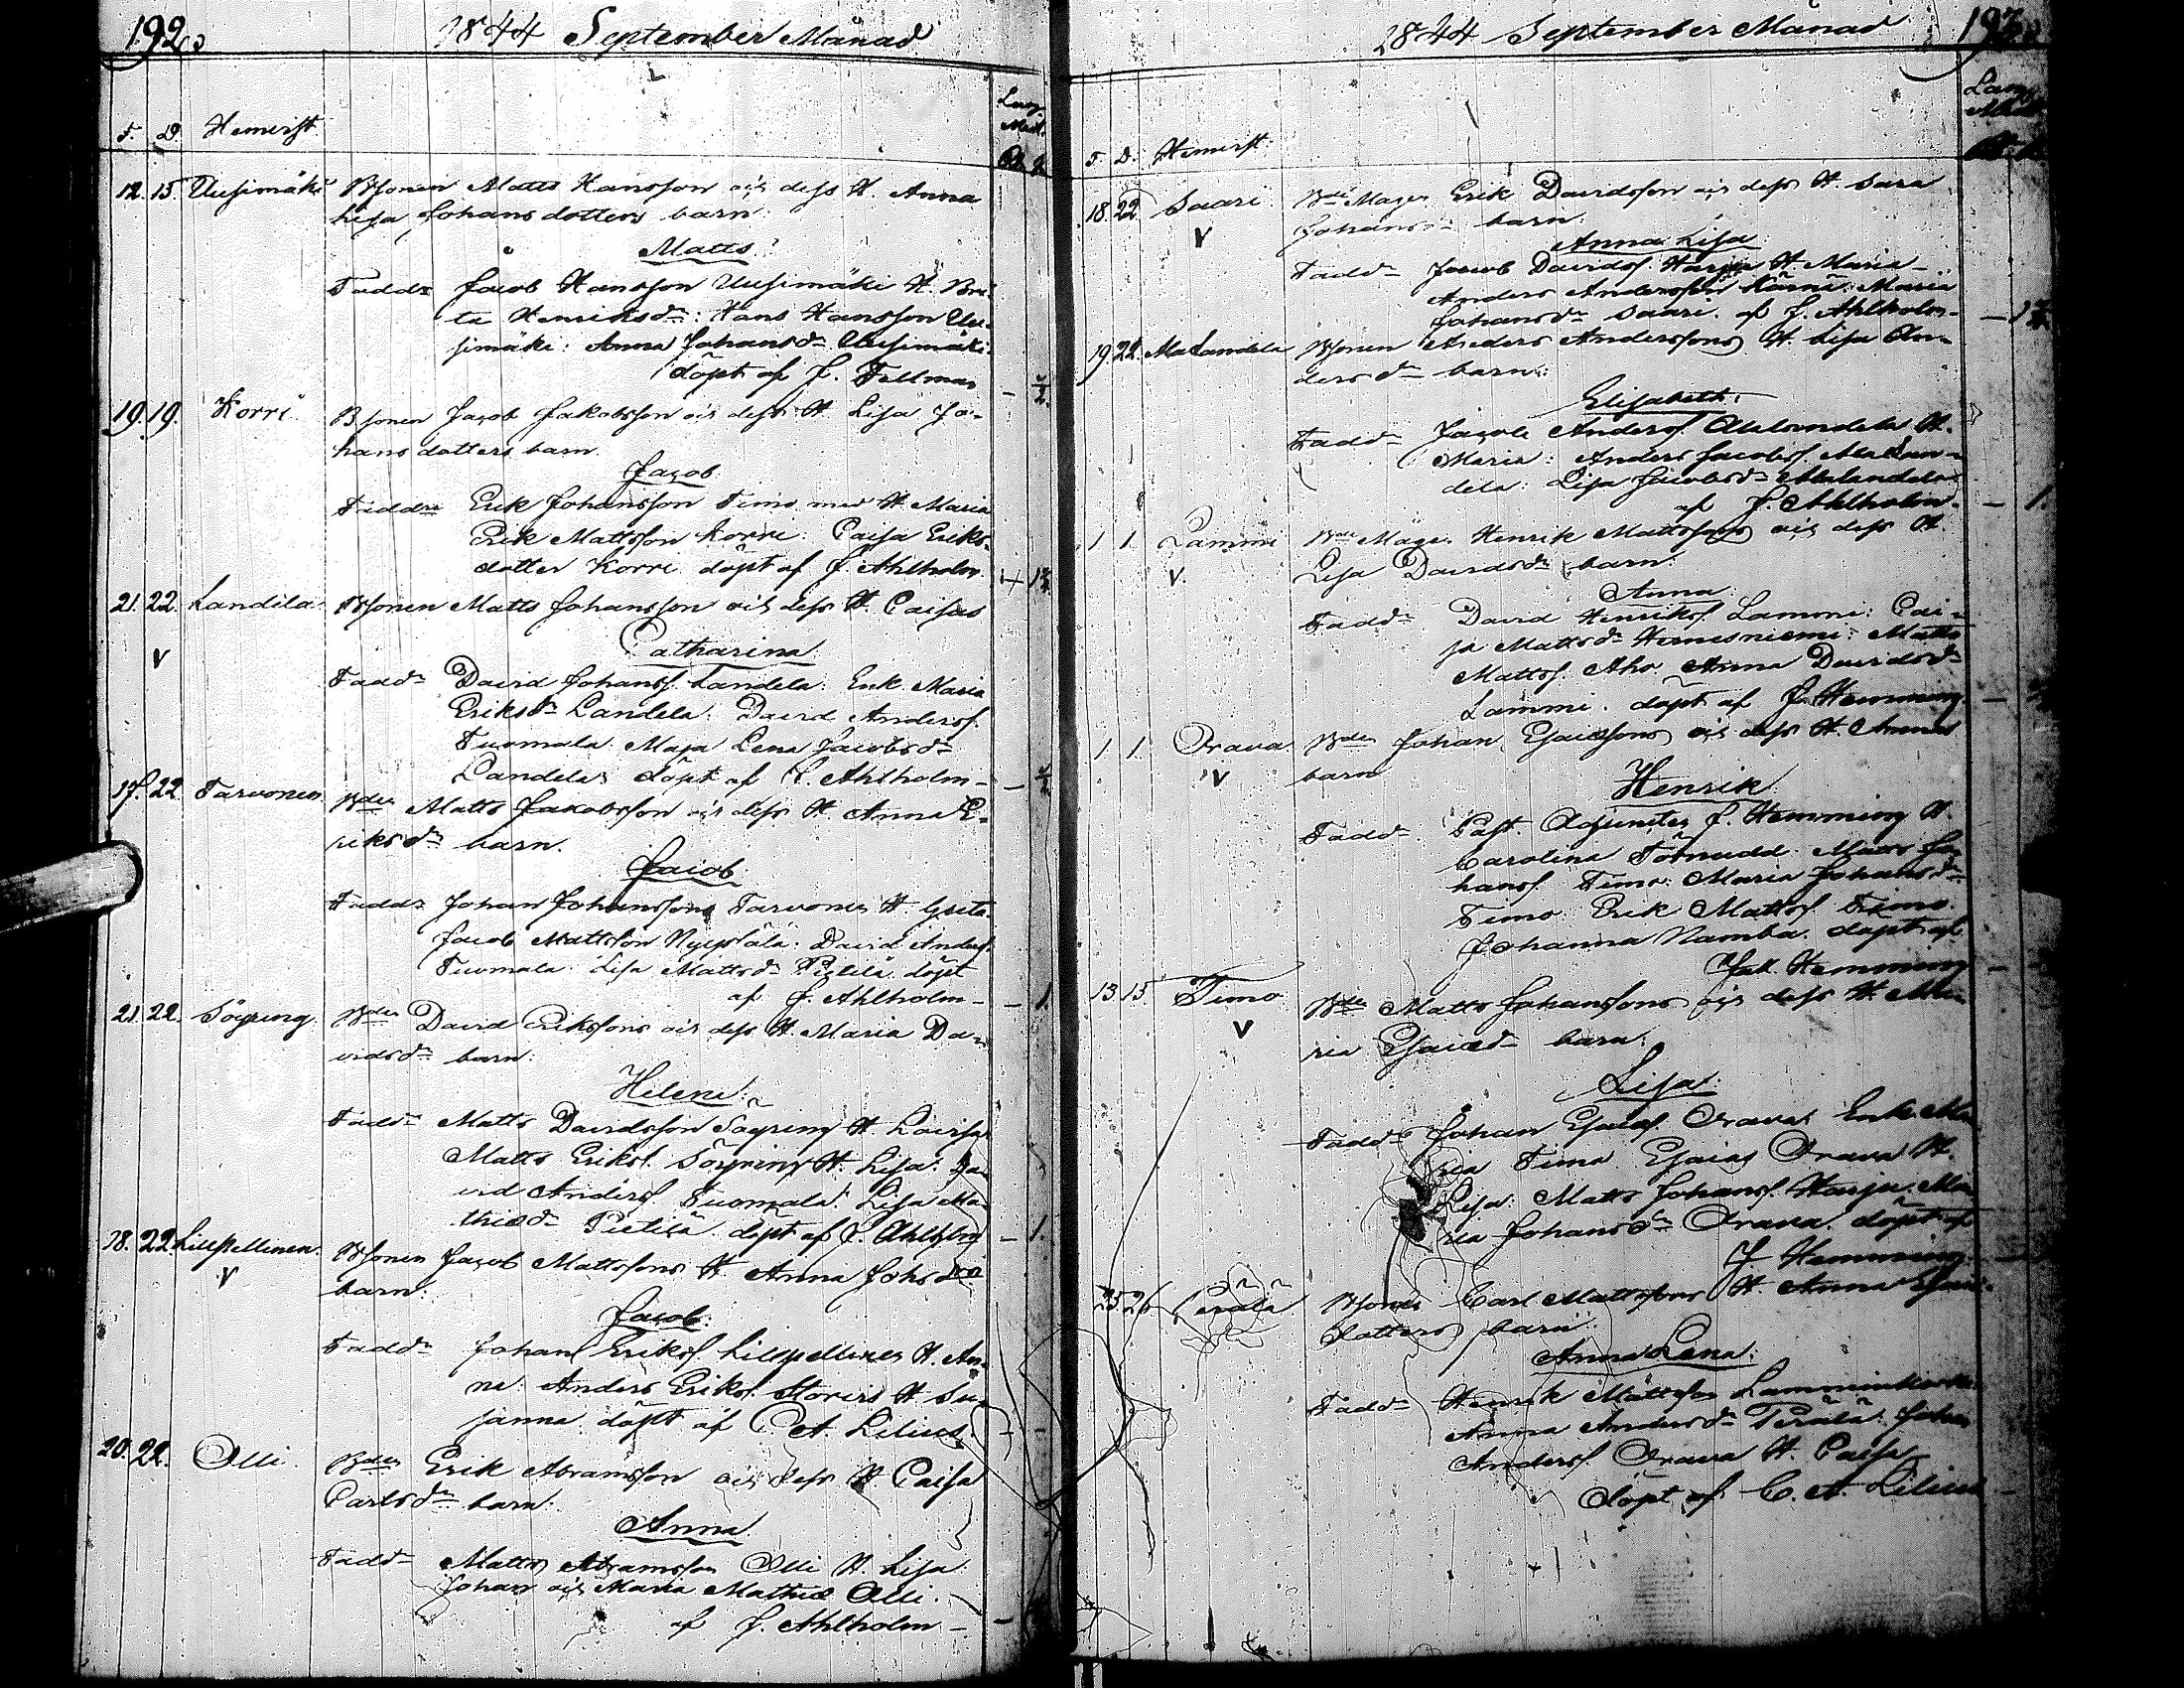 192
1844 September Månad
F. D. Hemvist
12. 15. Uusimäki Bsonen Matts Hansson och dess H. Anna
Lisa Johansdotters barn:
Matts
Faddr Jacob Hansson Uusimäki H. Bri-
ta Henriksdr: Hans Hansson Uu-
simäki: Anna Johansdr Uusimäki
döpt af J. Fellman
19. 19. Korri Bsonen Jacob Jakobsson och dess H. Lisa Jo-
hansdotters barn.
Jacob
Faddr Erik Johansson Timo med H. Maria
Erik Mattsson Korri: Caisa Eriks-
dotter Korri döpt af J. Ahlholm.
21. 22. Landela Bsonen Matts Johansson och dess H. Caisas
V
Catharina
Faddr David Johanss. Landela: Enk. Maria
Eriksdr Landela: David Anderss.
Tuomala Maja Lena Jacobsdr
Landela döpt af J. Ahlholm
17. 22. Tarvonen Bden Matts Jakobsson och dess H. Anna E-
riksdr barn.
Jacob
Faddr Johan Johanssons Tarvonen H. Greta
Jacob Mattsson David Anderss.
Tuomala Lisa Mattsdr Pietilä döpt
af J. Ahlholm
21. 22. Söyring Bden David Erikssons och dess H. Maria Da-
vidsdr barn:
Helena
Faddr Matts Davidsson Söyring H. Lovisa
Matts Erikss. Söyring H. Lisa: Da-
vid Anderss. Tuomala: Lisa Ma-
thisdr Pietilä döpt af J. Ahlholm
18. 22. Lillpellinen Bsonen Jacob Mattssons H. Anna Johsdrs
V
barn:
Jacob
Faddr Johan Erikss. Lillpellinen H. An-
na: Anders Erikss. H. Su-
sanna döpt af C. A. Lilius.
20. 22. Olli Bden Erik Abramsson och dess H Caisa
Carlsdr barn:
Anna
Faddr Matts Abramsson Olli H. Lisa
Johan och Maria Mathisd Olli.
af J. Ahlholm
1844 September Månad
193
F. D. Hemvist
18. 22. Saari Bde Mågen Erik Davidsson och dess H. Sara
V
Johansdr barn:
Anna Lisa
Faddr Jacob Davidss. Harju H. Maria
Anders Andersson Maria
Johansdr Saari. af J. Ahlholm
19. 22. Alalandela Bsonen Anders Anderssons H. Lisa An-
dersdr barn:
Elisabeth.
Faddr Jacob Anderss. Alalandela H.
Maria: Anders Jacobss. Alalan-
dela: Lisa Jacobsdr Alalandela
af J. Ahlholm.
1. 1. Lammi Bde Mågen Henrik Mattssons och dess H.
V.
Lisa Davidsdr barn:
Anna
Faddr David Henrikss. Lammi: Cai-
sa Mattsdr Hernesniemi: Matts
Mattss. Aho. Anna Davidsdr
Lammi. döpt af J. Hemming.
1. 1. Orava Bden Johan Esaiassons och dess H. Annas
V
barn
Henrik
Faddr Past. Adjuncten J. Hemming H.
Carolina Törnudd. Matts Jo-
hanss. Timo: Maria Johansdr
Timo: Erik Mattss. Timo.
Johanna Namba. döpt af
Joh. Hemming
13. 15. Timo Bde Matts Johanssons och dess H. Ma-
V
ria Esaiaedr barn:
Lisa
Faddr Johan Esaiass. Orava: Enk. Ma-
ria Timo Esaias Orava H.
Lisa: Matts Johanss. Harju. Ma-
ria Johansdr Orava. döpt af
J. Hemming
25. 26. Perälä Bsonen Carl Mattssons H. Anna Esaie-
dotters barn:
Anna Lena:
Faddr Henrik Mattsson
Anna Andersdr Perälä: Johan
Anderss. Orava H. Caisa
döpt af C. A. Lilius